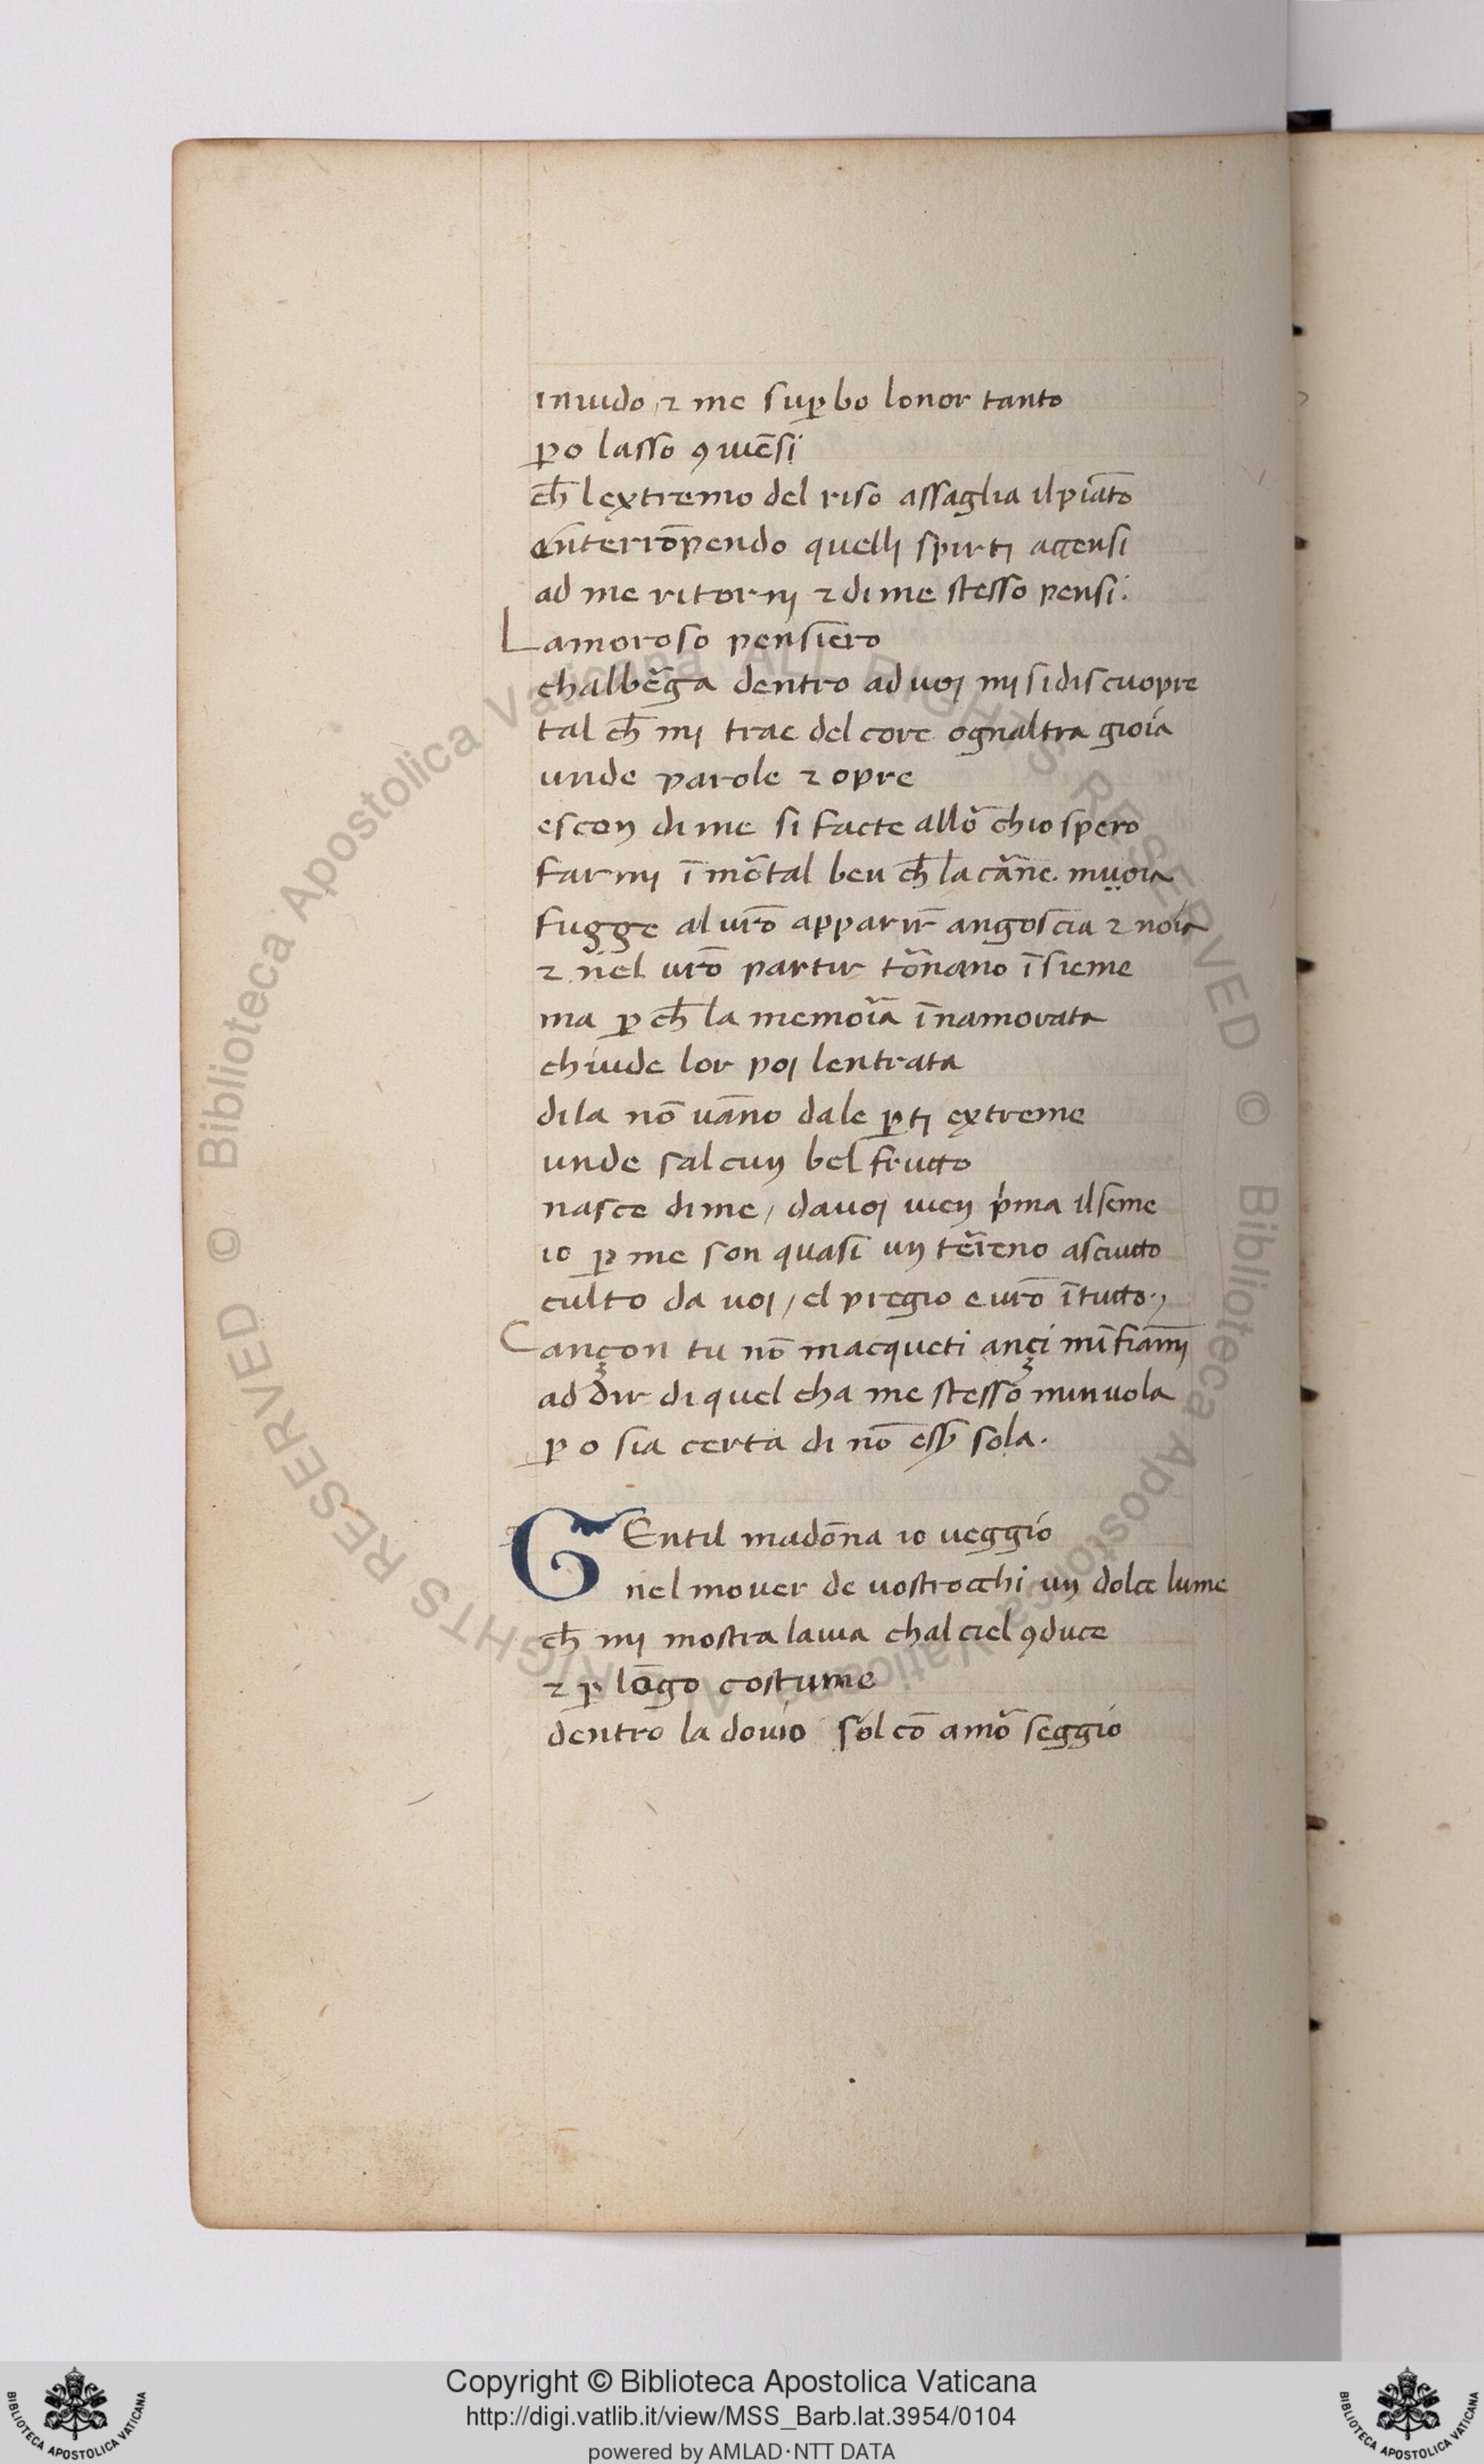 inuido, ⁊ me suꝑbo lonor tanto
ꝑo lasso ꝯuēsi
ch̄ lextremo del riso assaglia il piāto
enterrōpendo quellj spirtj accensi
ad me ritornj ⁊ di me stesso pensi.
Lamoroso pensiero
chalbẽga dentro ad uoj mj si discuopre
tal ch̄ mj trae del core ognaltra gioia
unde parole ⁊ opre
escon di me si facte allõ chio spero
farmj īmõtal ben ch̄ la cãne. muoia
fugge al ur̄o apparir angoscia ⁊ noia
⁊ nel ur̄o partir tõnano īsieme
ma ꝑ ch̄ la memoĩa īnamorata
chiude lor poj lentrata
di la nō uāno dale ꝑtj extreme
unde salcun bel frutto
nasce di me, da uoj uien pⁱma il seme
io ꝑ me son quasi un tẽreno asciutto
culto da uoi, el pregio e ur̄o ī tutto.,
Cançon tu nō macqueti ançi mīfiāmj
ad dir di quel cha me stesso minuola
ꝑo sia certa di nō eẜẜ sola.
GEntil madōna io ueggio
nel mouer de uostrocchi un dolce lume
ch̄ mj mostra la uia chal ciel ꝯduce
⁊ ꝑ lōgo costume
dentro la douio sol cō amõ seggio
© Biblioteca Apostolica Vaticana ALL RIGHTS RESERVED © Biblioteca Apostolica Vaticana ALL RIGHTS RESERVED
BIBLIOTECA APOSTOLICA VATICANA
Copyright © Biblioteca Apostolica Vaticana
http://digi.vatlib.it/view/MSS_Barb.lat.3954/0104
powered by AMLAD·NTT DATA
BIBLIOTECA APOSTOLICA VATICANA